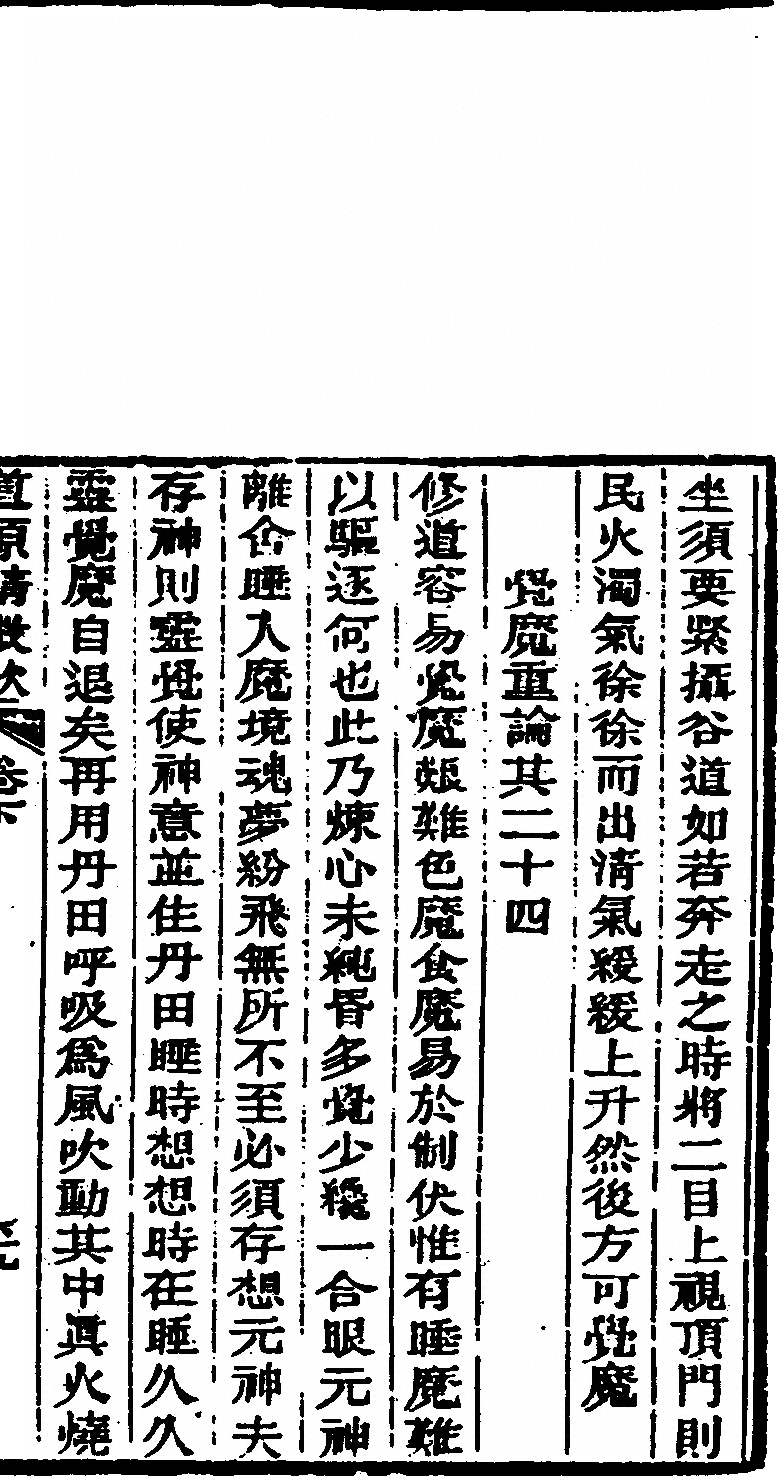 坐須要緊攝谷道如若奔走之時將二目上視頂門則
民火濁氣徐徐而出清氣緩緩上升然後方可覺魔
覺魔重論其二十四
修道容易覺魔艱難色魔食魔易於制伏惟有睡魔難
以驅逐何也此乃煉心未純昏多覺少纔一合眼元神
離舍睡入魔境魂夢紛飛無所不至必須存想元神夫
存神則靈覺使神意並住丹田睡時想想時在睡久久
靈覺魔自退矣再用丹田呼吸爲風吹動其中眞火燒
道原精微歌 卷下